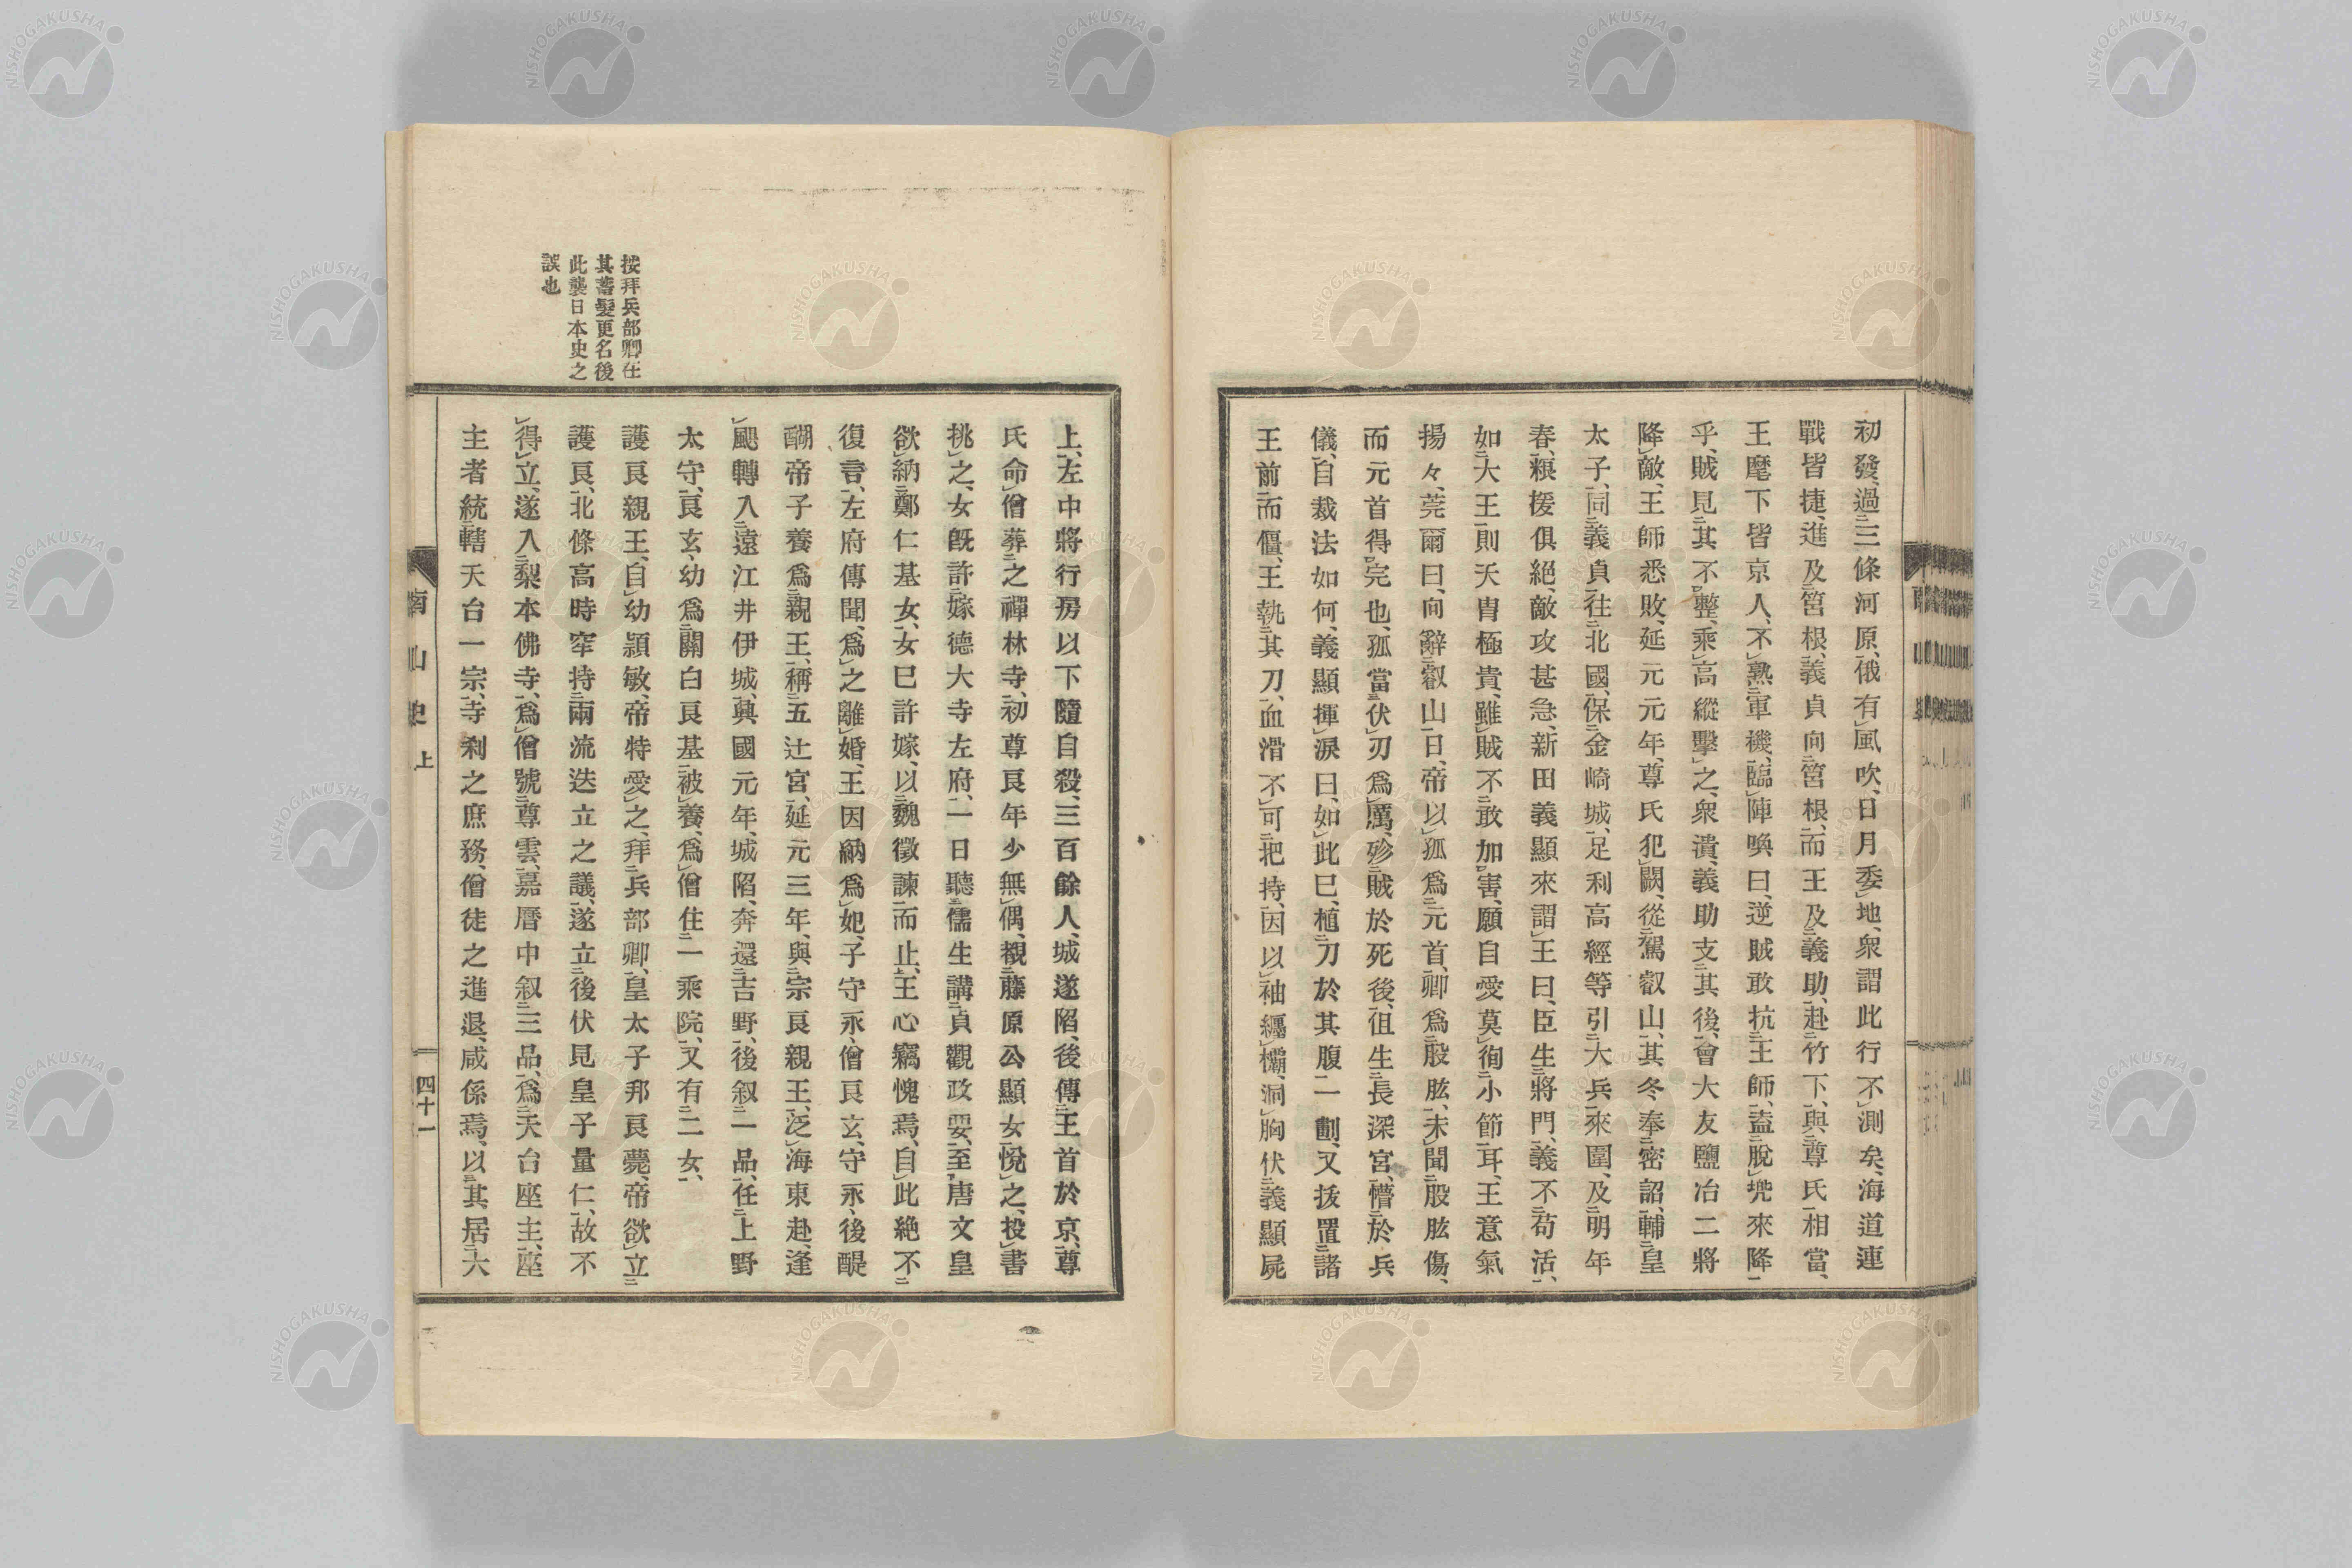 初發、過三條河原、俄有風吹、日月委地、衆謂此行不測矣、海道連
戰皆捷、進及筥根、義貞向筥根、而王及義助、赴竹下、與尊氏相當、
王麾下皆京人、不熟軍機、臨陣喚曰、逆賊敢抗王師、盍脫兜來降
乎、賊見其不整、乘高縱擊之、衆潰、義助支其後、會大友鹽冶二將
降敵、王師悉敗、延元元年、尊氏犯闕、從駕叡山、其冬奉密詔、輔皇
太子、同義貞往北國、保金崎城、足利高經等引大兵來圍、及明年
春、糧援俱絕、敵攻甚急、新田義顯來謂王曰、臣生將門、義不苟活、
如大王則天胄極貴、雖賊不敢加害、願自愛莫徇小節耳、王意氣
揚々、莞爾曰、向辭叡山日、帝以孤爲元首、卿爲股肱、未聞股肱傷、
而元首得完也、孤當伏刃爲厲、殄賊於死後、徂生長深宮、懵於兵
儀、自裁法如何、義顯揮淚曰、如此已、植刀於其腹一劃、又拔置諸
王前而僵、王執其刀、血滑不可把持、因以袖纒欛、洞胸伏義顯屍
上、左中將行房以下隨自殺、三百餘人、城遂陷、後傳王首於京、尊
氏命僧葬之禪林寺、初尊良年少無偶、覩藤原公顯女悅之、投書
挑之、女既許嫁德大寺左府、一日聽儒生講貞觀政要、至唐文皇
欲納鄭仁基女、女已許嫁、以魏徵諫而止、王心竊愧焉、自此絕不
復言、左府傳聞、爲之離婚、王因納爲妃、子守永、僧良玄、守永、後醍
醐帝子養爲親王、稱五辻宮、延元三年、與宗良親王、泛海東赴、逢
颶轉入遠江井伊城、興國元年、城陷、奔還吉野、後叙一品、任上野
太守、良玄、幼爲關白良基被養、爲僧住一乘院、又有二女、
護良親王、自幼頴敏、帝特愛之、拜兵部卿、皇太子邦良薨、帝欲立
護良、北條高時牢持兩流迭立之議、遂立後伏見皇子量仁、故不
得立、遂入梨本佛寺、爲僧號尊雲、嘉曆中叙三品、爲天台座主、座
主者統轄天台一宗、寺刹之庶務、僧徒之進退、咸係焉、以其居大
按拜兵部卿在
其蓄髮更名後
此襲日本史之
誤也
南山史 上
四十一